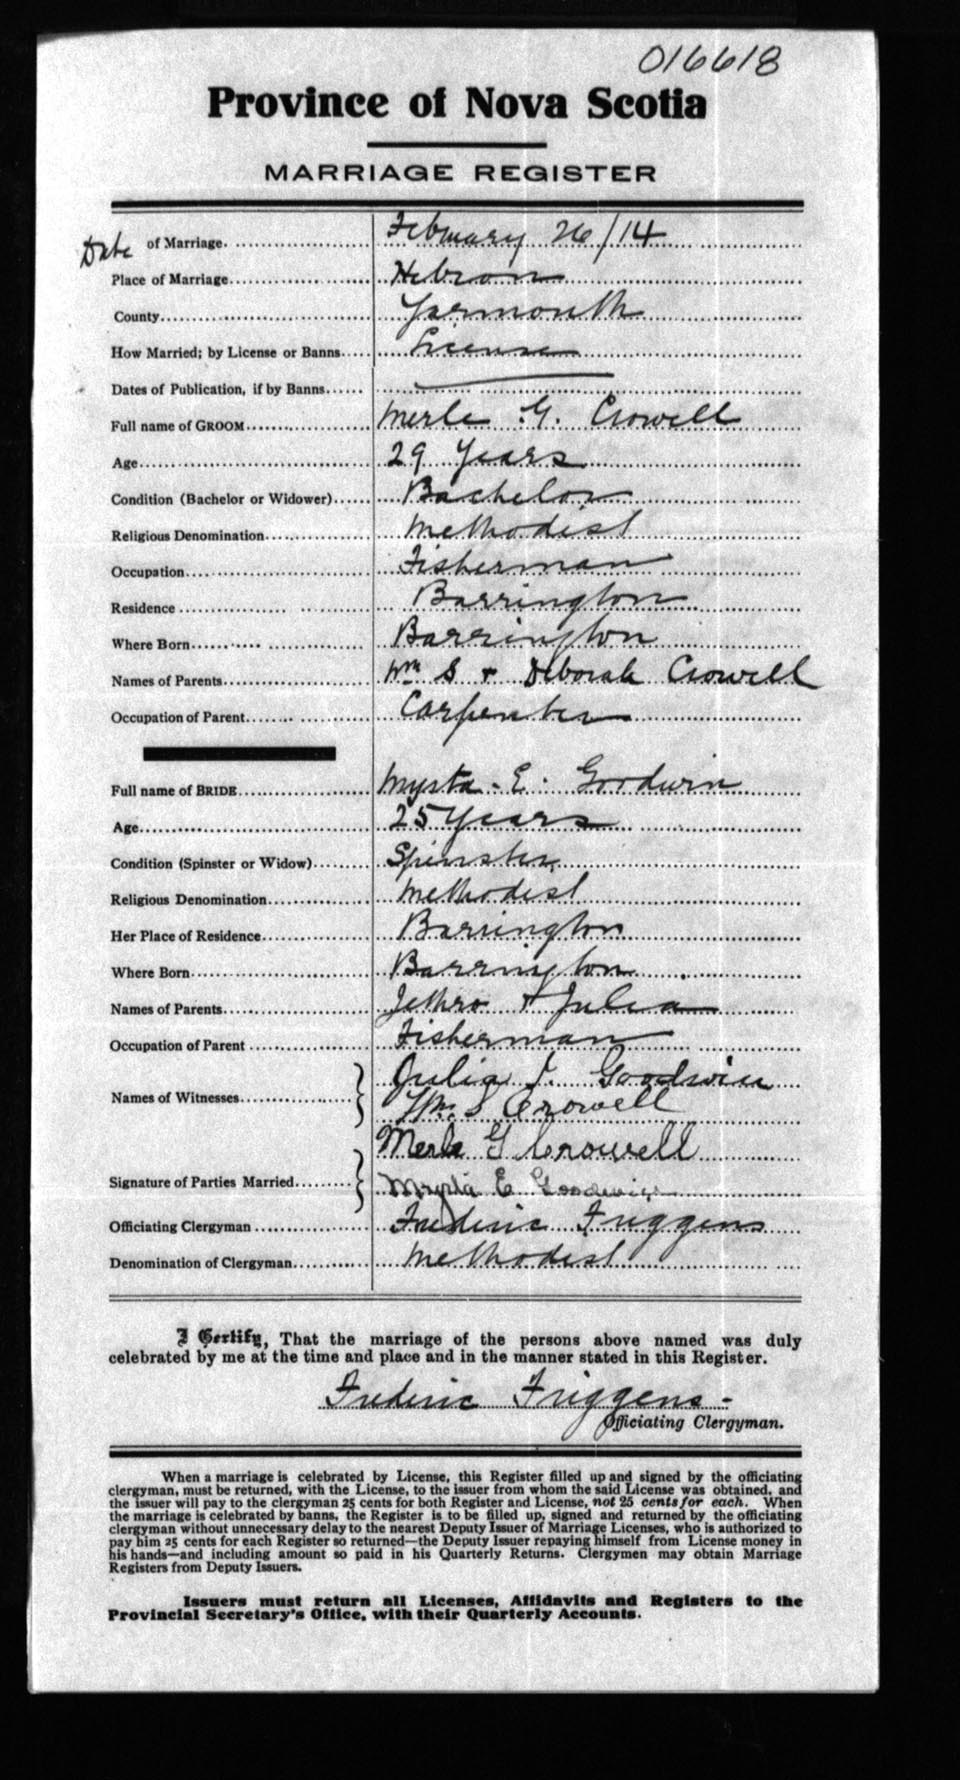 016618
Province of Nova Scotia
MARRIAGE REGISTER
Date of Marriage. February 26/14
Place of Marriage Hebron
County Yarmouth
How Married; by License or Banns License
Dates of Publication, if by Banns
Full name of GROOM Merle G. Crowell
Age 29 Years
Condition (Bachelor or Widower) Bachelor
Religious Denomination Methodist
Occupation Fisherman
Residence Barrington
Where Born Barrington
Names of Parents Wm S + Deborah Crowell
Occupation of Parent Carpenter
Full name of BRIDE Myrta E. Goodwin
Age 25 Years
Condition (Spinster or Widow) Spinster
Religious Denomination Methodist
Her Place of Residence Barrington
Where Born Barrington
Names of Parents Jethro + Julia
Occupation of Parent Fisherman
Names of Witnesses Julia J. Goodwin
Wm. S Crowell
Merle G Crowell
Signature of Parties Married Myrta E Goodwin
Officiating Clergyman Frederic Friggens
Denomination of Clergyman Methodist
I Certify, That the marriage of the persons above named was duly
celebrated by me at the time and place and in the manner stated in this Register.
Frederic Friggens -
Officiating Clergyman.
When a marriage is celebrated by License, this Register filled up and signed by the officiating
clergyman, must be returned, with the License, to the issuer from whom the said License was obtained, and
the issuer will pay to the clergyman 25 cents for both Register and License, not 25 cents for each. When
the marriage is celebrated by banns, the Register is to be filled up, signed and returned by the officiating
clergyman without unnecessary delay to the nearest Deputy Issuer of Marriage Licenses, who is authorized to
pay him 25 cents for each Register so returned—the Deputy Issuer repaying himself from License money in
his hands—and including amount so paid in his Quarterly Returns. Clergymen may obtain Marriage
Registers from Deputy Issuers.
Issuers must return all Licenses, Affidavits and Registers to the
Provincial Secretary's Office, with their Quarterly Accounts.